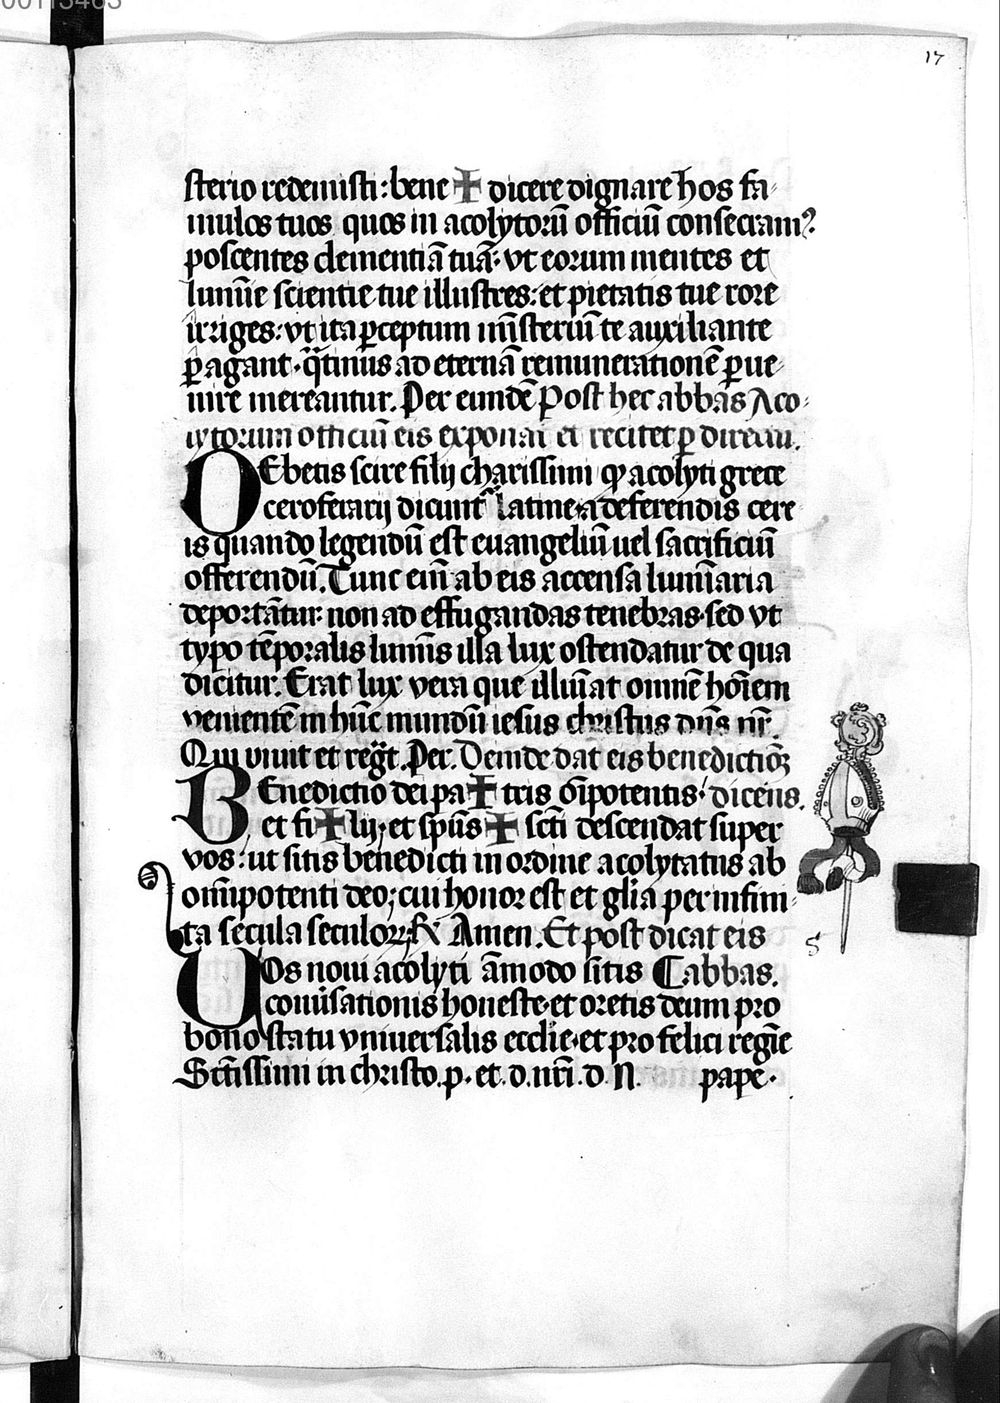 00113463
17
sterio redemisti: bene ✠ dicere dignare hos fa-
mulos tuos quos in acolytorū officiū consecram?
poscentes clementiā tuā: vt eorum mentes et
lumīe scientie tue illustres: et pietatis tue rore
irriges: vt ita ꝑceptum mīsteriū te auxiliante
ꝑagant. q̄tinus ad eternā remunerationē ꝑue-
nire mereantur. Per eundē Post hec abbas Aco-
lytorum officiū eis exponat et recitet ꝑ directū.
DEbetis scire filij charissimi ꝙ acolyti grece
ceroferarij dicunt latine a deferendis cere
is quando legendū est euangeliū uel sacrificiū
offerendū. Tunc eim̄ ab eis accensa lumīaria
deportāntur: non ad effugandas tenebras sed vt
typo tēporalis lumīs illa lux ostendatur de qua
dicitur. Erat lux vera que illuīat omnē hoīem
venientē in hūc mundū iesus christus dn̄s nr̄.
Qui viuit et regt̄. Per. Deinde dat eis benedictiōꝫ
BEnedictio dei pa ✠ tris oīpotentis: dicens.
et fi ✠ lij; et spūs ✠ sc̄ti descendat super
vos: ut sitis benedicti in ordine acolytatus ab
omīpotenti deo; cui honor est et glīa per infini-
ta secula seculoꝝ. ℟ Amen. Et post dicat eis
VOs noui acolyti āmodo sitis ¶ abbas.
conūsationis honeste et oretis deum pro
bono statu vniuersalis ecclīe et pro felici regīe
Sc̄tissimi in christo. p. et. d. nrī. d. N. pape.